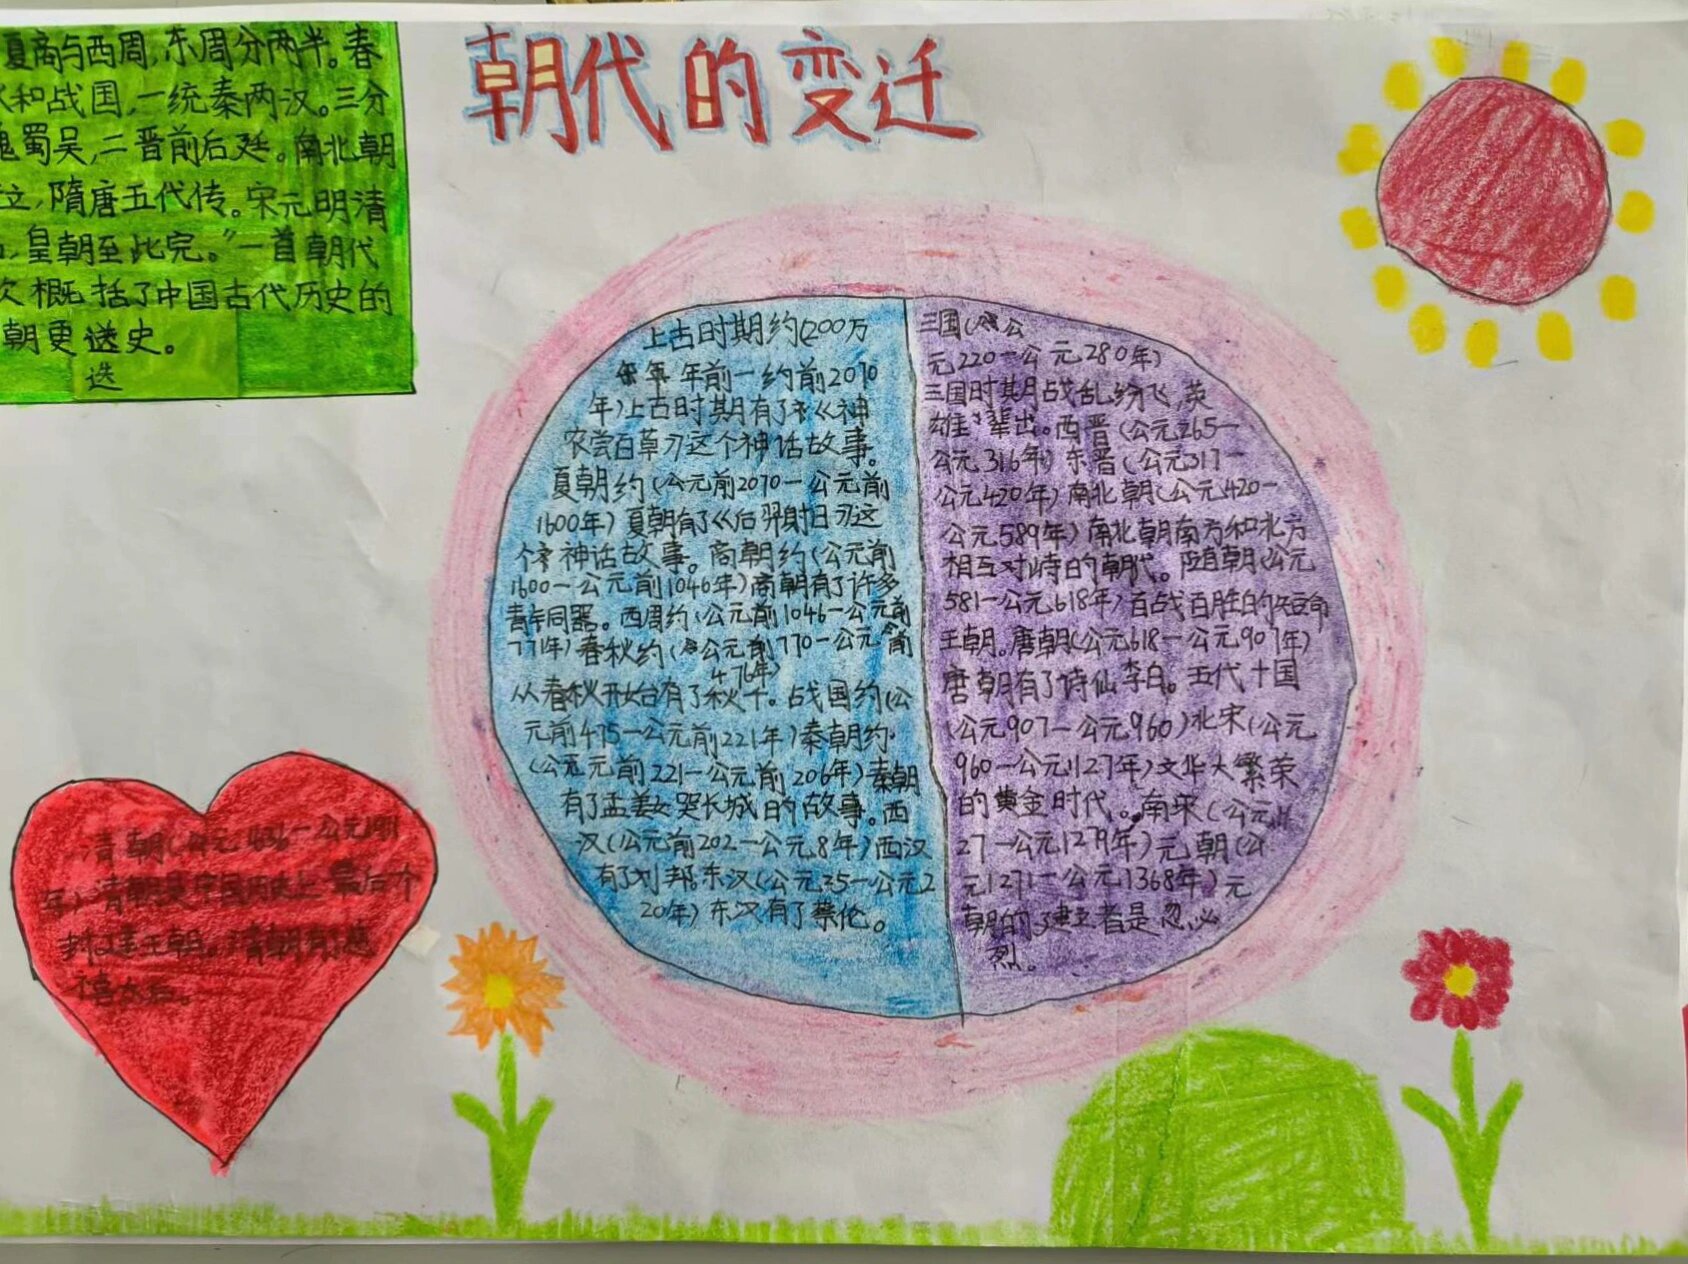 朝代的变迁
夏商与西周,东周分两半。春
和战国,一统秦两汉。三分
魏蜀吴,二晋前后延。南北朝
立,隋唐五代传。宋元明清
,皇朝至此完。”一首朝代
次概括了中国古代历史的
朝更迭史。
迭
上古时期约(200万
年前一约前2070
年)上古时期有了《神
农尝百草》这个神话故事。
夏朝约(公元前2070一公元前
1600年)夏朝有了《后羿射日》这
个神话故事。商朝约(公元前
1600一公元前1046年)商朝有了许多
青年同器。西周约(公元前1046一公元前
771年)春秋约(公元前770一公元前
476年)
从春秋开始有了秋千。战国约(公
元前475一公元前221年)秦朝约
(公元元前221一公元前206年)秦朝
有了孟姜女哭长城的故事。西
汉(公元前202一公元8年)西汉
有了刘邦。东汉(公元25一公元2
20年)东汉有了蔡伦。
三国(公
元220一公元280年)
三国时期战乱纷飞,英
雄辈出。西晋(公元265一
公元316年)东晋(公元317一
公元420年)南北朝(公元420一
公元589年)南北朝南方和北方
相互对峙的朝代。隋朝(公元
581一公元618年)百战百胜的短命
王朝。唐朝(公元618一公元907年)
唐朝有了诗仙李白。五代十国
(公元907一公元960)北宋(公元
960一公元1127年)文华大繁荣
的黄金时代。南宋(公元11
27一公元1279年)元朝(公
元1271一公元1368年)元
朝的了建立者是忽必
烈。
清朝(公元1636一公元1911
年)清朝是中国历史上最后个
封建王朝。清朝有慈
禧太后。